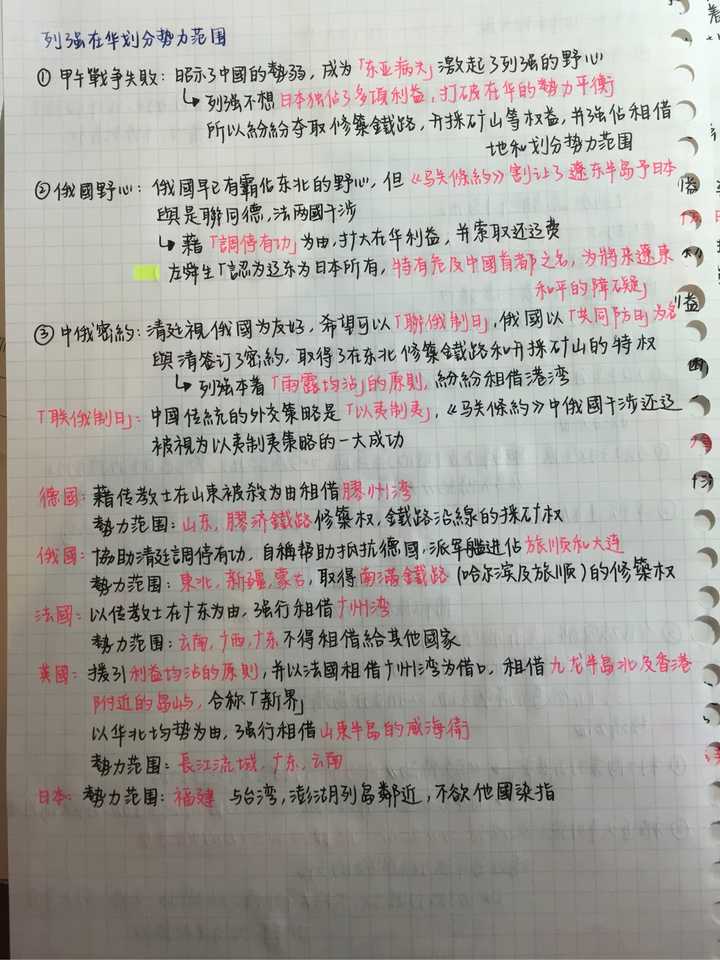 列强在华划分势力范围
① 甲午戰争失敗：昭示了中國的勢弱，成为「东亚病夫」激起了列强的野心
↳ 列强不想日本独佔了多项利益，打破在华的勢力平衡
所以紛紛夺取修築鐵路，开採矿山等权益，并强佔租借
地和划分势力范围
② 俄國野心：俄國早已有霸佔东北的野心，但《马关條約》割让了遼东半岛予日本
與是聯同德，法两國干涉
↳ 藉「調停有功」为由，扩大在华利益，并索取还辽费
左舜生「認为辽东为日本所有，特有危及中國首都之名，为將来遼東
和平的障碍」
③ 中俄密約：清廷視俄國为友好，希望可以「聯俄制日」，俄國以「共同防日」为名
與清签订了密約，取得了在东北修築鐵路和开採矿山的特权
↳ 列强本着「雨露均沾」的原則，紛紛相借港湾
「联俄制日」：中國传統的外交策略是「以夷制夷」，《马关條約》中俄國干涉还辽
被視为以夷制夷策略的一大成功
德國：藉传教士在山東被殺为由租借膠州湾
勢力范围：山东，膠济鐵路修築权，鐵路沿線的採矿权
俄國：协助清廷調停有功，自稱帮助抵抗德國，派军艦進佔旅顺和大连
勢力范围：東北，新疆，蒙古，取得南满鐵路（哈尔滨及旅顺）的修築权
法國：以传教士在广东为由，强行租借广州湾
勢力范围：云南，广西，广东不得租借給其他國家
英國：援引利益均沾的原則，并以法國租借广州湾为借口，租借九龙半島北及香港
附近的岛屿，合称「新界」
以华北均势为由，强行租借山東半岛的威海衛
勢力范围：長江流域，广东，云南
日本：勢力范围：福建 与台湾，澎湖列岛鄰近，不欲他國染指